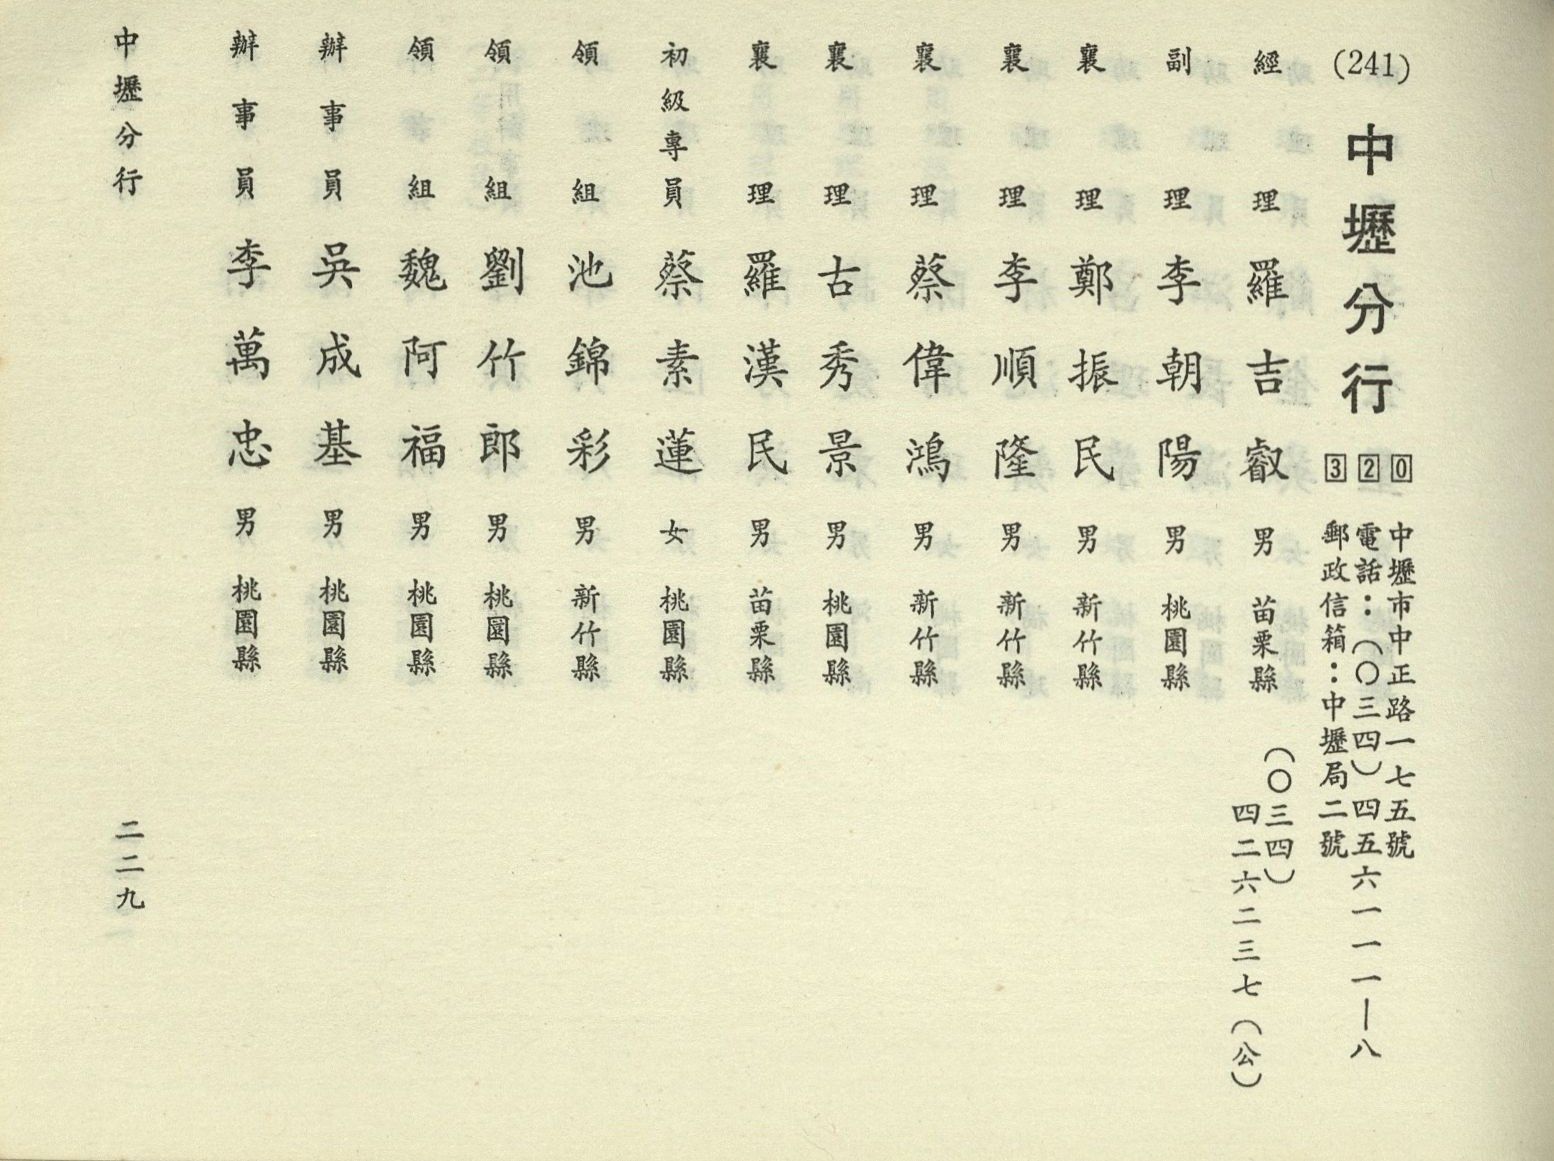 (241) 中壢分行
0 中壢市中正路一七五號
2 電話：(〇三四)四五六一一一一八
3 郵政信箱：中壢局二號
經理 羅吉叡 男 苗栗縣 (〇三四)四二六二三七(公)
副理 李朝陽 男 桃園縣
襄理 鄭振民 男 新竹縣
襄理 李順隆 男 新竹縣
襄理 蔡偉鴻 男 新竹縣
襄理 古秀景 男 桃園縣
襄理 羅漢民 男 苗栗縣
初級專員 蔡素蓮 女 桃園縣
領組 池錦彩 男 新竹縣
領組 劉竹郎 男 桃園縣
領組 魏阿福 男 桃園縣
辦事員 吳成基 男 桃園縣
辦事員 李萬忠 男 桃園縣
中壢分行
二二九